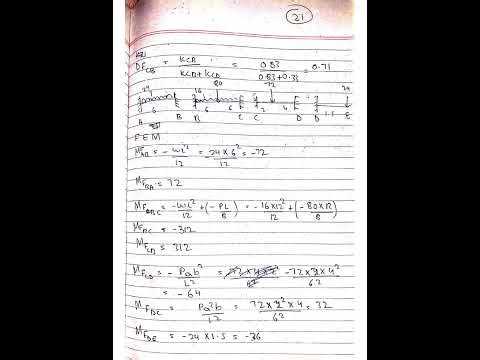 21
DF_CB = K_CB / (K_CB + K_CD) = 0.83 / (0.83+0.33) = 0.71
24 16 80 72 24
6 6 6 2 4 1.5
A B B C C D D E
FEM
MF_AB = -wL² / 12 = -24 × 6² / 12 = -72
MF_BA = 72
MF_BC = -wL² / 12 + (-PL / 8) = -16×12² / 12 + (-80×12 / 8)
MF_BC = -312
MF_CB = 312
MF_CD = -Pab² / L² = -72×2×4² / 6²
= -64
MF_DC = Pa²b / L² = 72×2²×4 / 6² = 32
MF_DE = -24 × 1.5 = -36